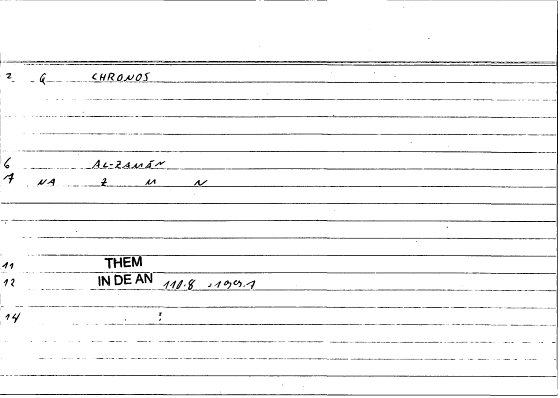 2 G CHRONOS
6 AL-ZAMĀN
7 NA Z M N
11 THEM
12 IN DE AN 110.8 .199.1
14 :